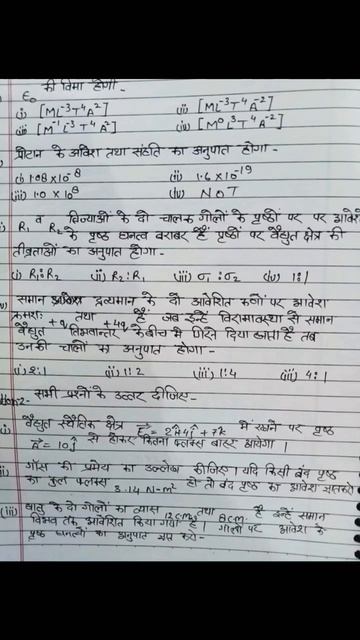 ε₀ की विमा होगी -
(i) [ML⁻³T⁴A²] (ii) [ML⁻³T⁴A⁻²]
(iii) [M⁻¹L⁻³T⁴A²] (iv) [M⁰L³T⁴A⁻²]
प्रोटान के आवेश तथा संहति का अनुपात होगा -
(i) 1.08×10⁻⁸ (ii) 1.6×10⁻¹⁹
(iii) 1.0×10⁸ (iv) NOT
R₁ व R₂ त्रिज्याओं के दो चालक गोलों के पृष्ठों पर पर आवेश
के पृष्ठ घनत्व बराबर हैं पृष्ठों पर वैद्युत क्षेत्र की
तीव्रताओं का अनुपात होगा -
(i) R₁:R₂ (ii) R₂:R₁ (iii) σ₁:σ₂ (iv) 1:1
समान द्रव्यमान के दो आवेशित कणों पर आवेश
क्रमशः +q तथा +4q हैं जब इन्हें विरामावस्था से समान
वैद्युत विभवान्तर के बीच में गिरने दिया जाता है तब
उनकी चालों का अनुपात होगा -
(i) 2:1 (ii) 1:2 (iii) 1:4 (iii) 4:1
सभी प्रश्नों के उत्तर दीजिए -
(i) वैद्युत स्थैतिक क्षेत्र में रखने पर पृष्ठ
से होकर कितना फ्लक्स बाहर आयेगा।
ii) गॉस की प्रमेय का उल्लेख कीजिए। यदि किसी बंद पृष्ठ
का कुल फ्लक्स 3.14 N-m² हो तो बंद पृष्ठ का आवेश ज्ञात करो
(iii) धातु के दो गोलों का व्यास 12cm तथा 8cm है इन्हें समान
विभव तक आवेशित किया गया है। गोलों पर आवेश के
पृष्ठ घनत्वों का अनुपात ज्ञात करो -